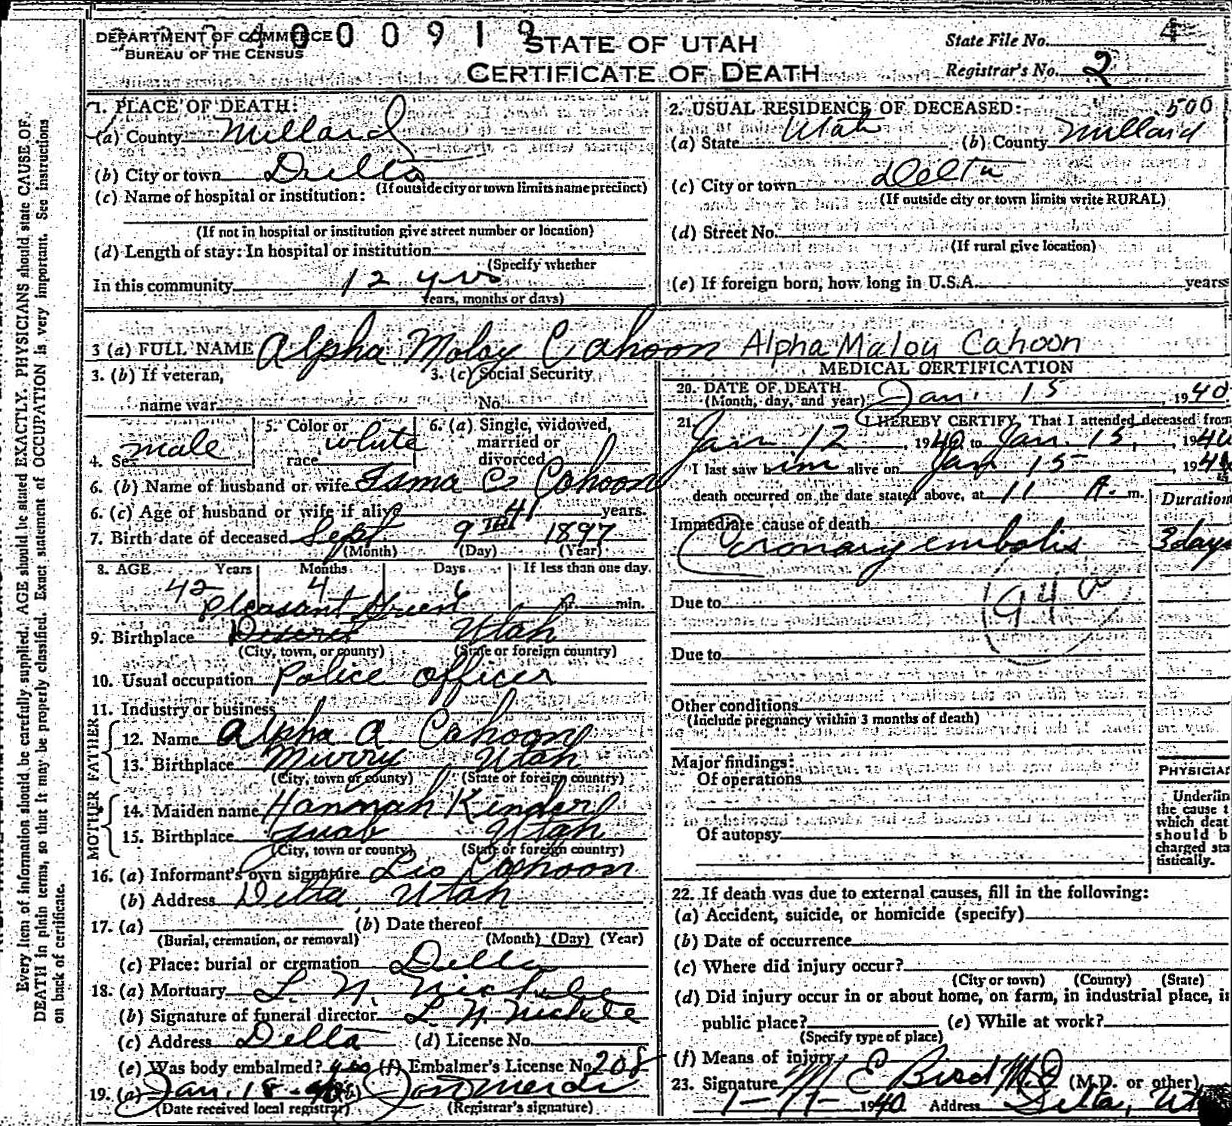 DEPARTMENT OF COMMERCE
BUREAU OF THE CENSUS
4000919
STATE OF UTAH
CERTIFICATE OF DEATH
State File No. 4
Registrar's No. 2
1. PLACE OF DEATH:
(a) County Millard
(b) City or town Delta
(If outside city or town limits name precinct)
(c) Name of hospital or institution:
(If not in hospital or institution give street number or location)
(d) Length of stay: In hospital or institution
(Specify whether
In this community 12 yrs
Years, months or days)
2. USUAL RESIDENCE OF DECEASED: 500
(a) State Utah (b) County Millard
(c) City or town Delta
(If outside city or town limits write RURAL)
(d) Street No.
(If rural give location)
(e) If foreign born, how long in U.S.A. years
3 (a) FULL NAME Alpha Moloy Cahoon Alpha Maloy Cahoon
3. (b) If veteran, 3. (c) Social Security
name war No.
4. Sex male 5. Color or race white 6. (a) Single, widowed, married or divorced
6. (b) Name of husband or wife C Cahoon
6. (c) Age of husband or wife if alive 41 years.
7. Birth date of deceased Sept 9TH 1897
(Month) (Day) (Year)
8. AGE Years Months Days If less than one day.
42 4 6 min.
Pleasant
9. Birthplace Deseret Utah
(City, town, or county) (State or foreign country)
10. Usual occupation Police officer
11. Industry or business
FATHER
12. Name Alpha A Cahoon
13. Birthplace Murry Utah
(City, town or county) (State or foreign country)
MOTHER
14. Maiden name Hannah Kinder
15. Birthplace Juab Utah
(City, town or county) (State or foreign country)
16. (a) Informant's own signature Leo Cahoon
(b) Address Delta, Utah
17. (a) (b) Date thereof
(Burial, cremation, or removal) (Month) (Day) (Year)
(c) Place: burial or cremation Delta
18. (a) Mortuary L. N.
(b) Signature of funeral director L. N.
(c) Address Delta (d) License No.
(e) Was body embalmed? yes (f) Embalmer's License No. 208
19. (a) Jan. 18-40 (b)
(Date received local registrar) (Registrar's signature)
MEDICAL CERTIFICATION
20. DATE OF DEATH
(Month, day, and year) Jan. 15, 1940
21. I HEREBY CERTIFY, That I attended deceased from
Jan 12 1940 to Jan. 15, 1940
I last saw him alive on Jan 15, 194
death occurred on the date stated above, at 11 A. m. Duration
Immediate cause of death
Coronary embolis 3 days
Due to 94
Due to
Other conditions
(Include pregnancy within 3 months of death)
Major findings:
Of operations
Of autopsy
PHYSICIAN
Underlin
the cause t
which deat
should b
charged sta
tistically.
22. If death was due to external causes, fill in the following:
(a) Accident, suicide, or homicide (specify)
(b) Date of occurrence
(c) Where did injury occur?
(City or town) (County) (State)
(d) Did injury occur in or about home, on farm, in industrial place, in
public place? (e) While at work?
(Specify type of place)
(f) Means of injury
23. Signature M E Bird M.D (M.D. or other)
1-17-1940 Address Delta, Ut
Every item of information should be carefully supplied. AGE should be stated EXACTLY. PHYSICIANS should state CAUSE OF
DEATH in plain terms, so that it may be properly classified. Exact statement of OCCUPATION is very important. See instructions
on back of certificate.